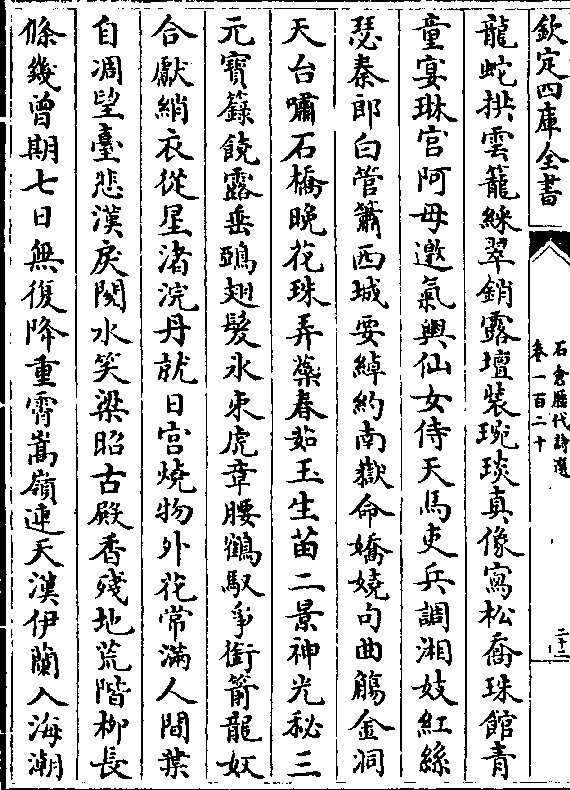 欽定四庫全書
石倉歷代詩選
卷一百二十
二十二
龍蛇拱雲籠綵翠銷露壇裝琬琰真像寫松喬珠館青
童宴琳宮阿母邀氣輿仙女侍天馬吏兵調湘妓紅絲
瑟秦郎白管簫西城要綽約南嶽命嬌嬈句曲觴金洞
天台嘯石橋晚花珠弄蘂春茹玉生苗二景神光秘三
元寶籙饒露垂鵶翅髮氷束虎章腰鶴馭爭銜箭龍奴
合獻綃衣從星渚浣丹就日宮燒物外花常滿人間葉
自凋望臺悲漢戾閱水笑梁昭古殿香殘地荒階柳長
條幾曾期七日無復降重霄嵩嶺連天漢伊蘭入海潮